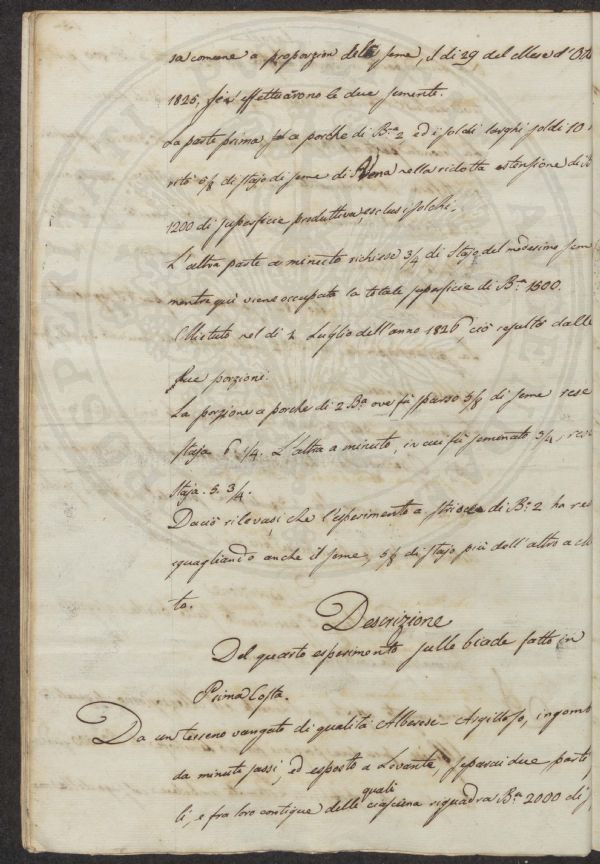 sa comune a proporzion della seme, il di 29 del Mese d'Ott
1825, si effettuarono le due semente.
La parte prima fu a porche di B.a 2, ed i soldi larghi soldi 10
5/8 di stajo di seme di Vena nella ridotta estensione di
1200 di superficie produttiva, esclusi i solchi.
L'altra parte a minuto richiese 3/4 di Stajo del medesimo sem
mentre quì viene occupata la totale superficie di B.a 1500.
Mietuto nel di 2 Luglio dell'anno 1826, ciò resultò dalle
due porzioni.
La porzione a porche di 2 B.a ove fù sparso 5/8 di seme rese
staja 6 1/4. L'altra a minuto, in cui fù seminato 3/4, rese
staja 5. 3/4.
Da ciò rilevasi, che l'esperimento a striscie di B.a 2 ha re
quagliando anche il seme, 5/8 di stajo più dell'altro a mi
to.
Descrizione
Del quarto esperimento sulle biade fatto in
Prima Costa.
Da un terreno vangato di qualità Alberese-Argilloso, ingomb
da minuti sassi, ed esposto a Levante, separai due parti
li, e fra loro contigue delle quali ciascuna riquadra B.a 2000 di